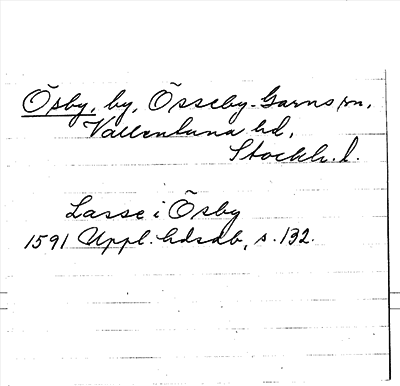 Ösby, by, Össeby-Garns sn,
Vallentuna hd,
Stockh. l.
Lasse i Ösby
1591 Uppl. hdsdb, s. 132.